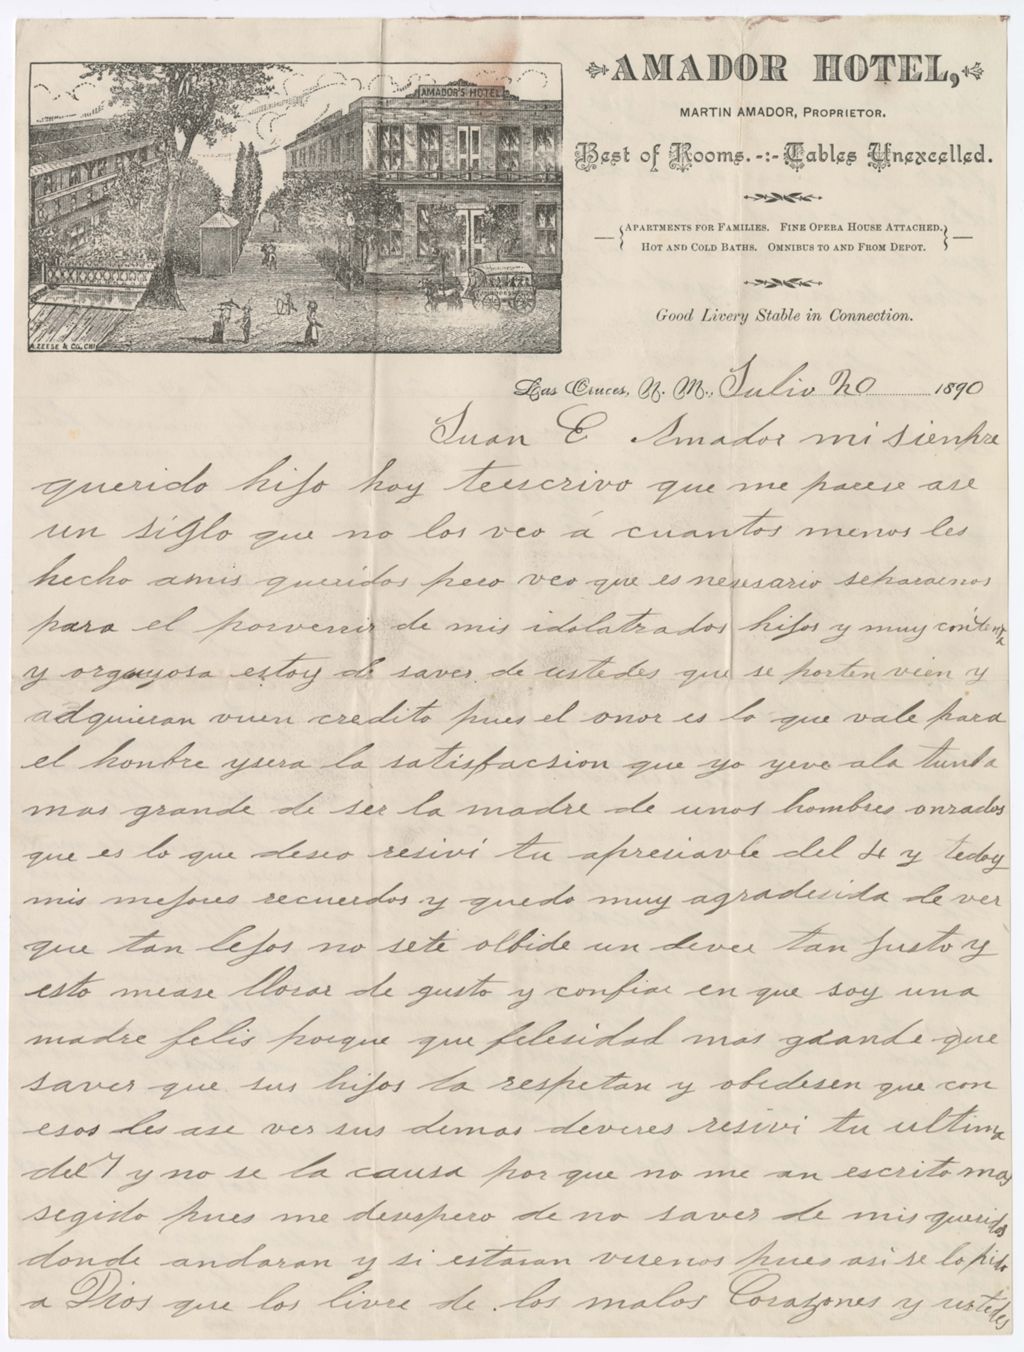 AMADOR'S HOTEL
A. ZEESE & CO. CHI
AMADOR HOTEL,
MARTIN AMADOR, PROPRIETOR.
Best of Rooms. -:- Tables Unexcelled.
APARTMENTS FOR FAMILIES. FINE OPERA HOUSE ATTACHED.
HOT AND COLD BATHS. OMNIBUS TO AND FROM DEPOT.
Good Livery Stable in Connection.
Las Cruces, N. M., Julio 20 1890
Juan E Amador mi sienpre
querido hijo hoy teescrivo que me parese ase
un siglo que no los veo á cuantos menos les
hecho amis queridos pero veo que es nesesario separarnos
para el porvenir de mis idolatrados hijos y muy contenta
y orguyosa estoy de saver de ustedes que se porten vien y
adquieran vuen credito pues el onor es lo que vale para
el honbre ysera la satisfacsion que yo yeve ala tunba
mas grande de ser la madre de unos hombres onrados
que es lo que deseo resivi tu apresiavle del 4 y tedoy
mis mejores recuerdos y quedo muy agradesida de ver
que tan lejos no sete olbide un dever tan justo y
esto mease llorar de gusto y confiar en que soy una
madre felis porque que felesidad mas grande que
saver que sus hijos la respetan y obedesen que con
esos les ase ver sus demas deveres resivi tu ultima
del 7 y no se la causa por que no me an escrito mas
segido pues me desespero de no saver de mis queridos
donde andaran y si estaran vuenos pues asi se lo pido
a Dios que los livre de los malos Corazones y ustedes